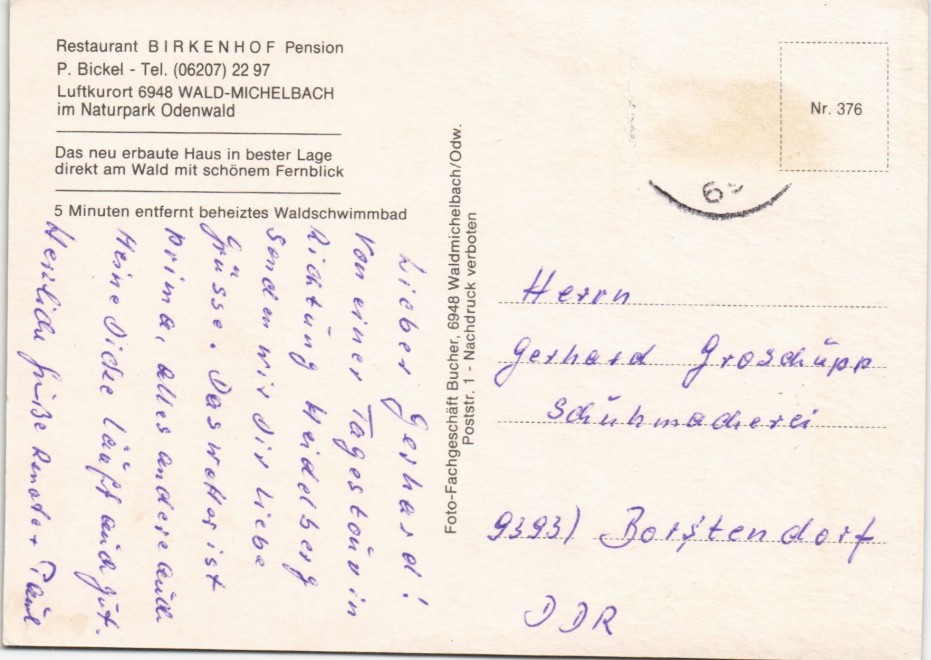 Restaurant BIRKENHOF Pension
P. Bickel - Tel. (06207) 22 97
Luftkurort 6948 WALD-MICHELBACH
im Naturpark Odenwald
Das neu erbaute Haus in bester Lage
direkt am Wald mit schönem Fernblick
5 Minuten entfernt beheiztes Waldschwimmbad
Lieber Gerhard!
Von einer Tagestour in
Richtung Heidelberg
senden wir Dir liebe
Grüsse. Das Wetter ist
prima, alles andere auch.
Meine Dicke läuft auch gut.
Herzliche Grüße Renate + Paul
Foto-Fachgeschäft Bucher, 6948 Waldmichelbach/Odw.
Poststr. 1 - Nachdruck verboten
Nr. 376
Herrn
Gerhard Groschupp
Schuhmacherei
9393) Borstendorf
DDR